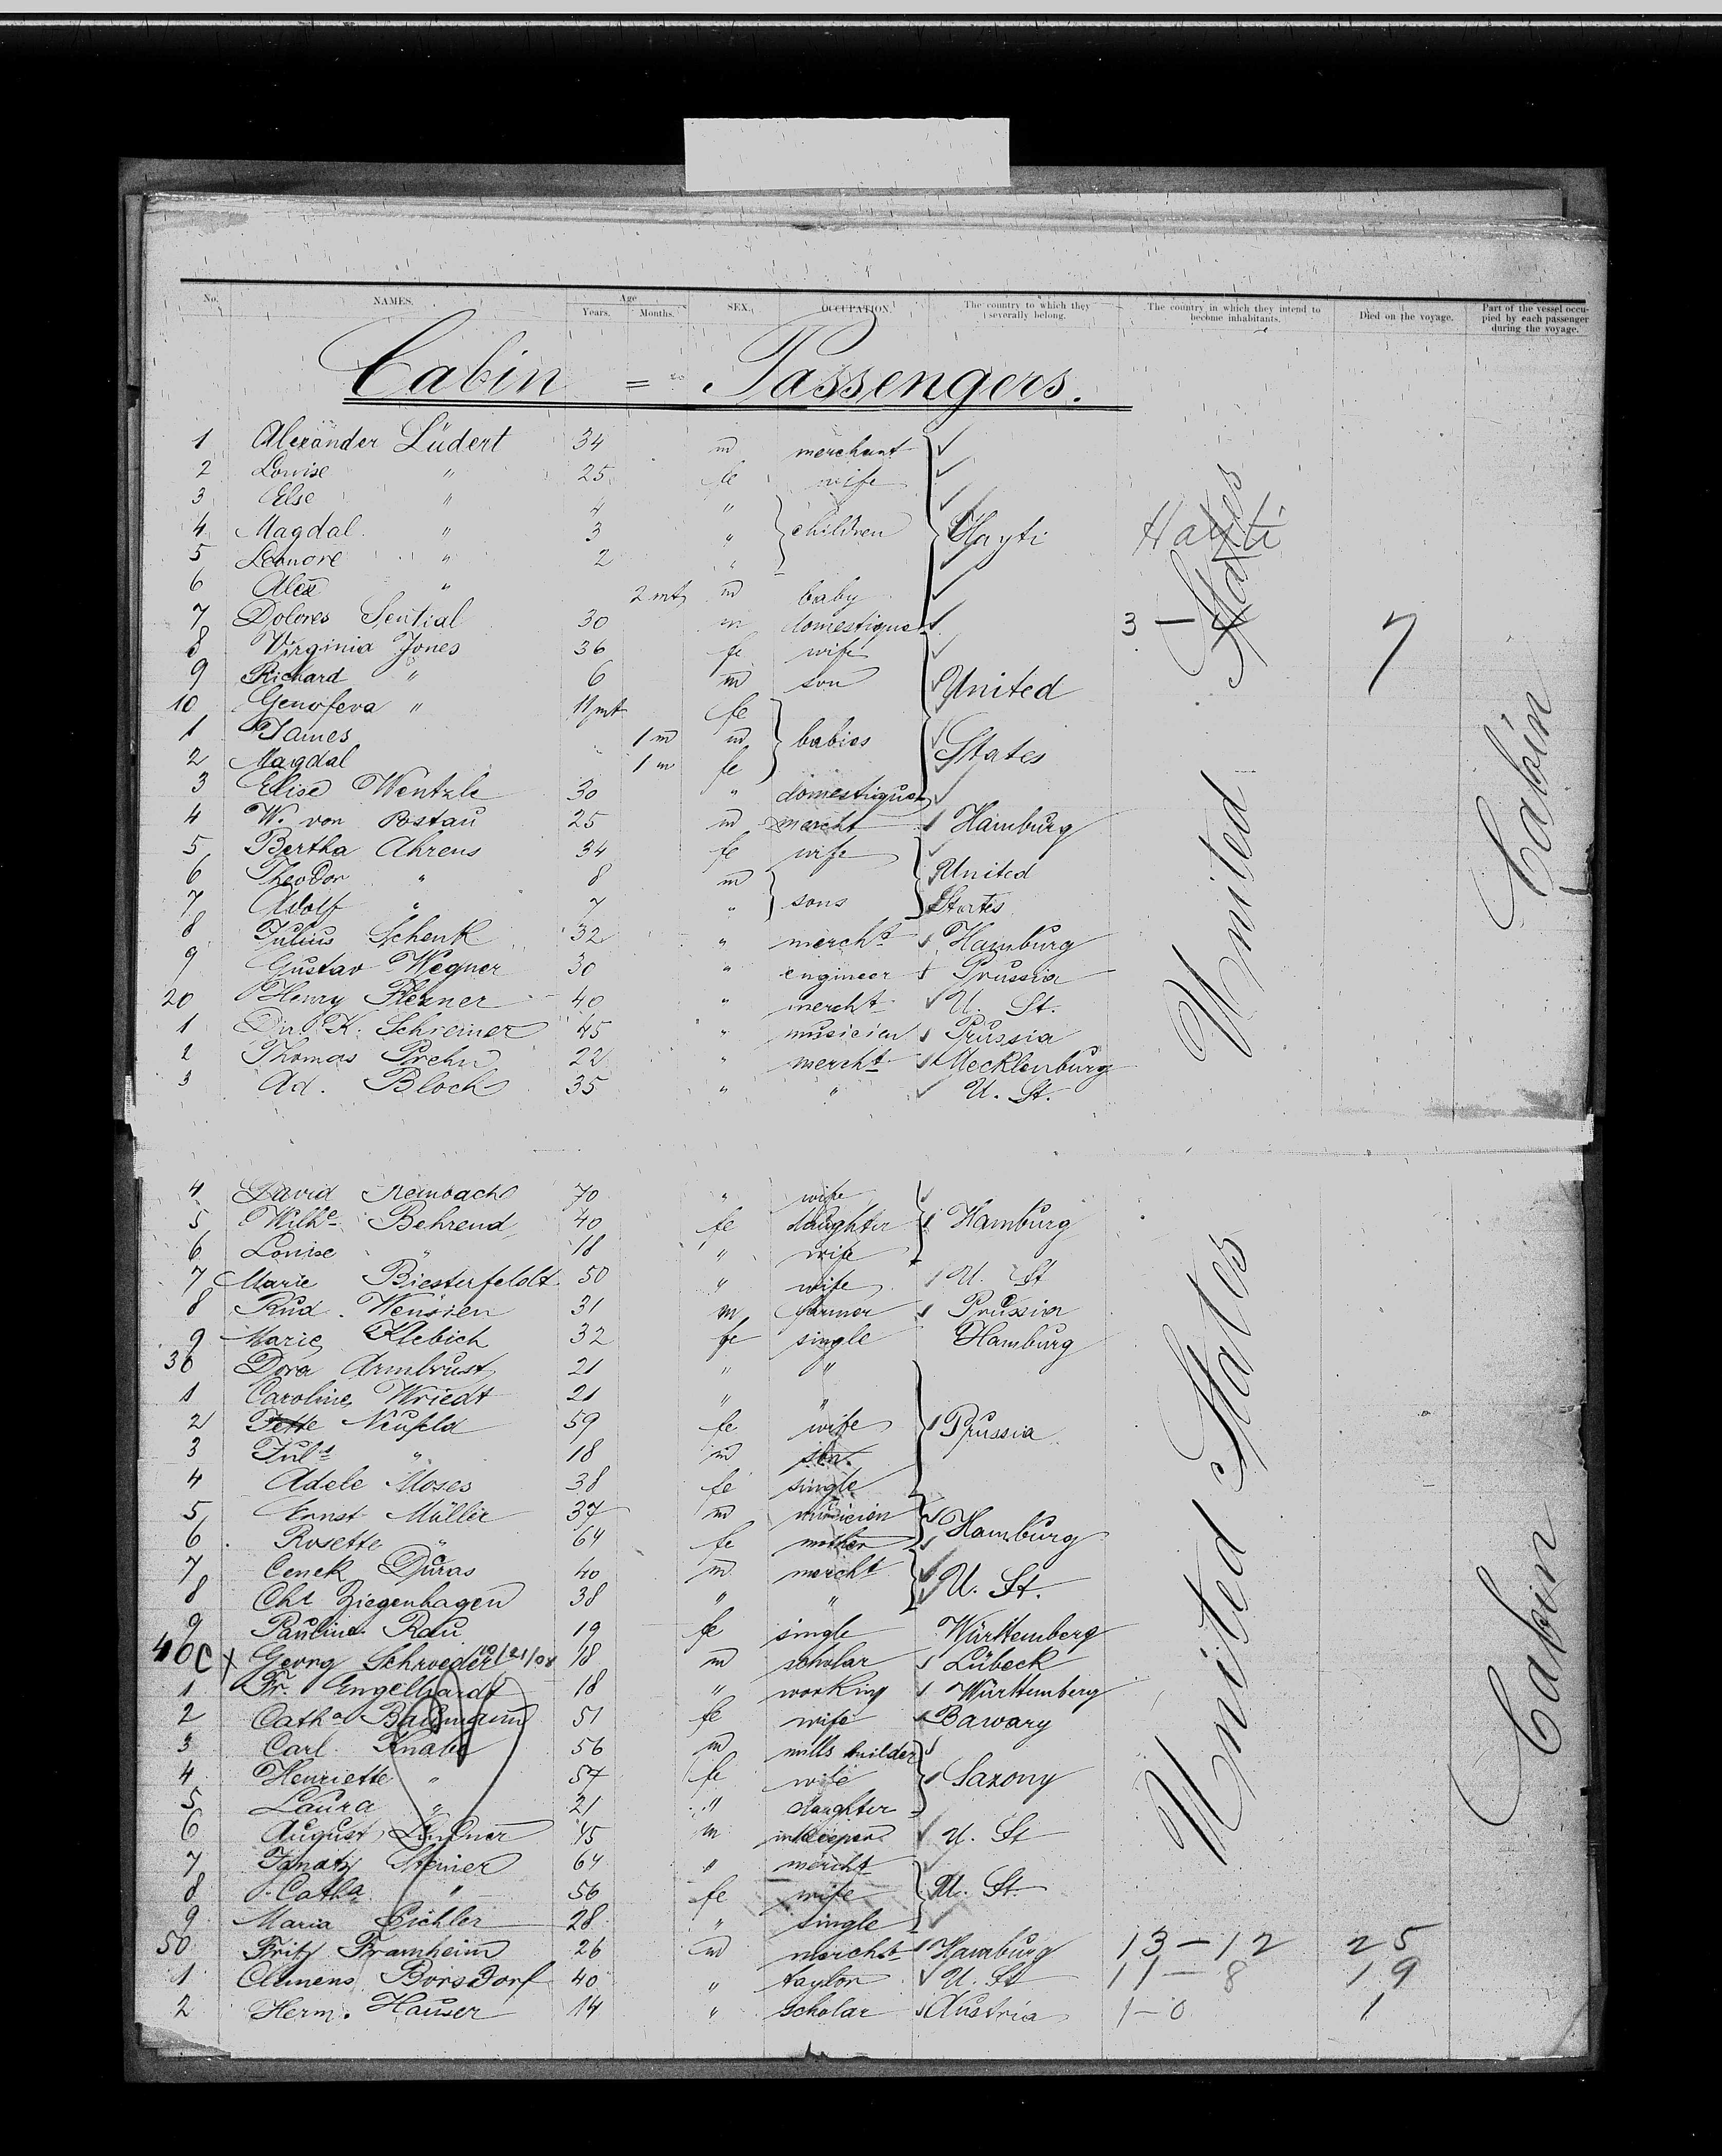 No. NAMES. Age Years. Months. SEX. OCCUPATION. The country to which they severally belong. The country in which they intend to become inhabitants. Died on the voyage. Part of the vessel occupied by each passenger during the voyage.
Cabin = Passengers.
1 Alexander Lüdert 34 m merchant
2 Louise " 25 fe wife
3 Else " 4 "
4 Magdal. " 3 " children Hayti Hayti
5 Leonore " 2 "
6 Alex " 2 mt m baby
7 Dolores 30 m domestique 3 – 7
8 Virginia Jones 36 fe wife
9 Richard " 6 m son United
10 Genofeva " 11 mt fe
1 James 1 m m babies States
2 Magdal 1 m fe
3 Elise Wentzle 30 " domestique
4 W. von Postau 25 m mercht Hamburg
5 Bertha Ahrens 34 fe wife
6 Theodor " 8 m United
7 Adolf " 7 " sons States
8 Julius Schenk 32 " mercht Hamburg
9 Gustav Wegner 30 " engineer Prussia
20 Henry 40 " mercht U. St.
1 K. Schreiner 45 " musicien Prussia
2 Thomas Prehn 22 " mercht Mecklenburg
3 Ad. Bloch 35 " " U. St.
United States
Cabin
4 David Reinbach 70 " wife
5 Wilhe Behrend 40 fe daughter Hamburg
6 Louise " 18 " wife
7 Marie Biesterfeldt 50 " wife U. St
8 Rud. 31 m farmer Prussia
9 Marie Klebich 32 fe single Hamburg
30 Dora Armbrust 21 " "
1 Caroline Wriedt 21 " "
2 Jette Neufeld 59 fe wife Prussia
3 Juls " 18 m son
4 Adele Moses 38 fe single
5 Ernst Müller 37 m musicien
6 Rosette " 64 fe mother Hamburg
7 Cenek Duras 40 m mercht
8 Chr Ziegenhagen 38 " " U. St.
9 Pauline Rau 19 fe single Württemberg
40 C X Georg Schroeder 10/21/08 18 m scholar Lübeck
1 Fr. Engelhardt 18 " working Württemberg
2 Catha Baumann 51 fe wife Bawary
3 Carl Knabe 56 m mills builder
4 Henriette " 57 fe wife Saxony
5 Laura " 21 " daughter
6 August Lindner 45 m U. St
7 Ignatz Steiner 64 " mercht
8 Catha " 56 fe wife U. St.
9 Maria Eichler 28 " single
50 Fritz Framheim 26 m mercht Hamburg 13 – 12 25
1 Clemens Borsdorf 40 " taylor U. St 11 – 8 19
2 Herm. Hauser 14 " scholar Austria 1 – 0 1
United States
Cabin